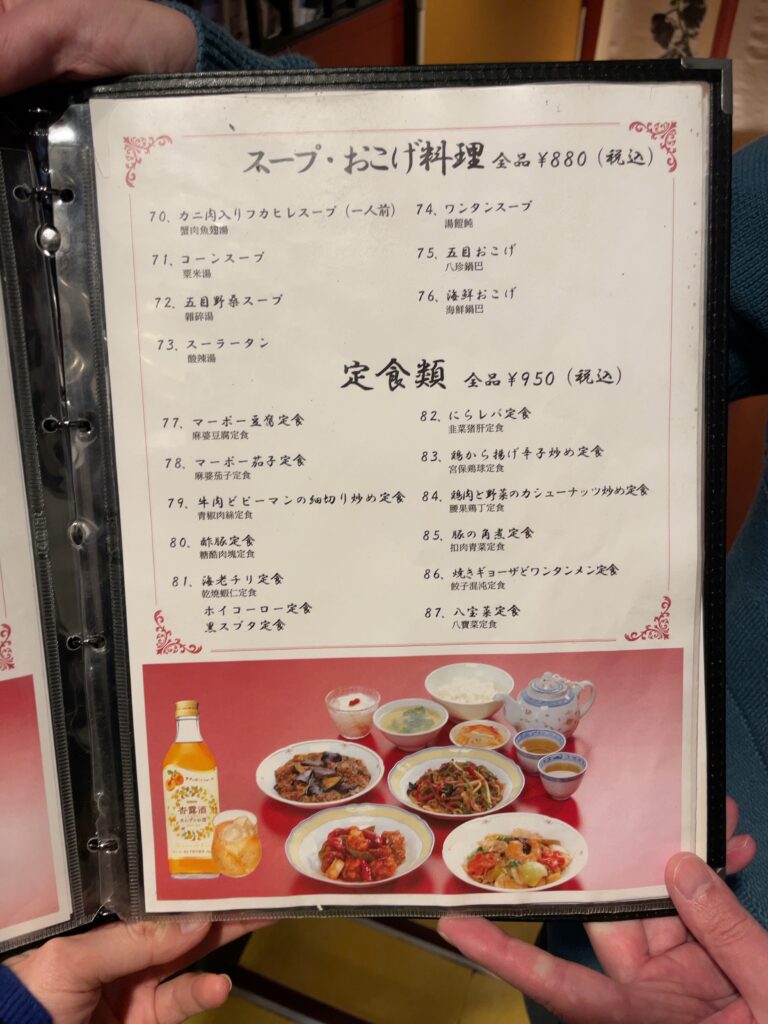 スープ・おこげ料理 全品¥880(税込)
70、カニ肉入りフカヒレスープ(一人前)
蟹肉魚翅湯
71、コーンスープ
粟米湯
72、五目野桑スープ
雜碎湯
73、スーラータン
酸辣湯
74、ワンタンスープ
湯餛飩
75、五目おこげ
八珍鍋巴
76、海鮮おこげ
海鮮鍋巴
定食類 全品¥950(税込)
77、マーボー豆腐定食
麻婆豆腐定食
78、マーボー茄子定食
麻婆茄子定食
79、牛肉とピーマンの細切り炒め定食
青椒肉絲定食
80、酢豚定食
糖酷肉塊定食
81、海老チリ定食
乾焼蝦仁定食
ホイコーロー定食
黒スブタ定食
82、にらレバ定食
韭菜猪肝定食
83、鶏から揚げ辛子炒め定食
宮保鶏球定食
84、鶏肉と野菜のカシューナッツ炒め定食
腰果鶏丁定食
85、豚の角煮定食
扣肉青菜定食
86、焼きギョーザとワンタンメン定食
餃子混沌定食
87、八宝菜定食
八寶菜定食
杏露酒